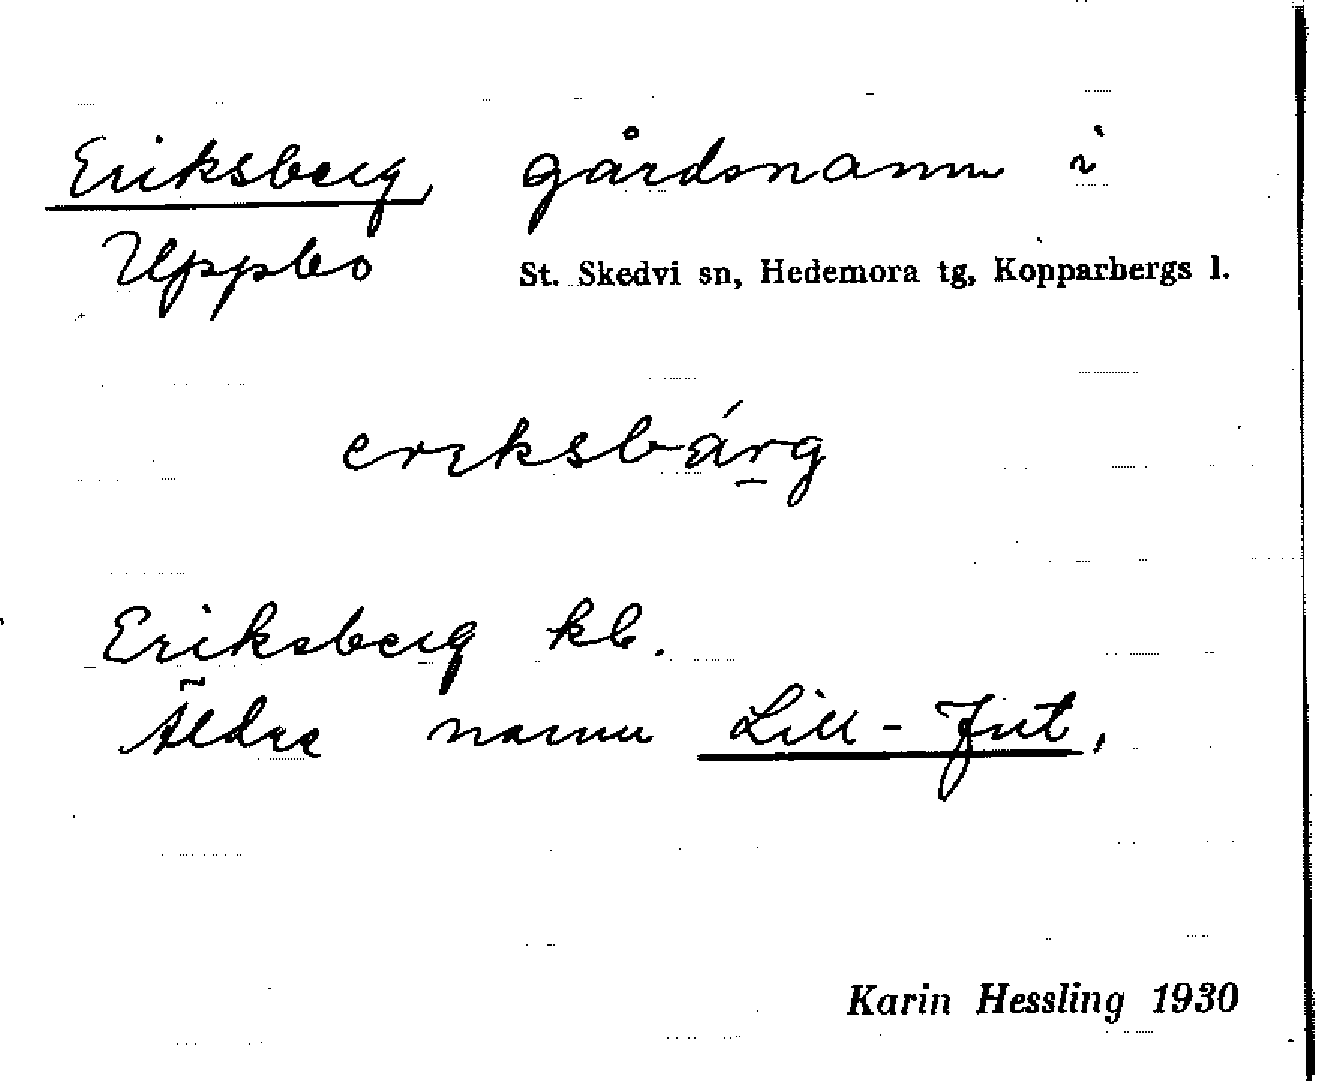 Eriksberg, gårdsnamn i
Uppbo St. Skedvi sn, Hedemora tg, Kopparbergs l.
eriksbárg
Eriksberg kb.
Äldre namn Lill-Jut,
Karin Hessling 1930